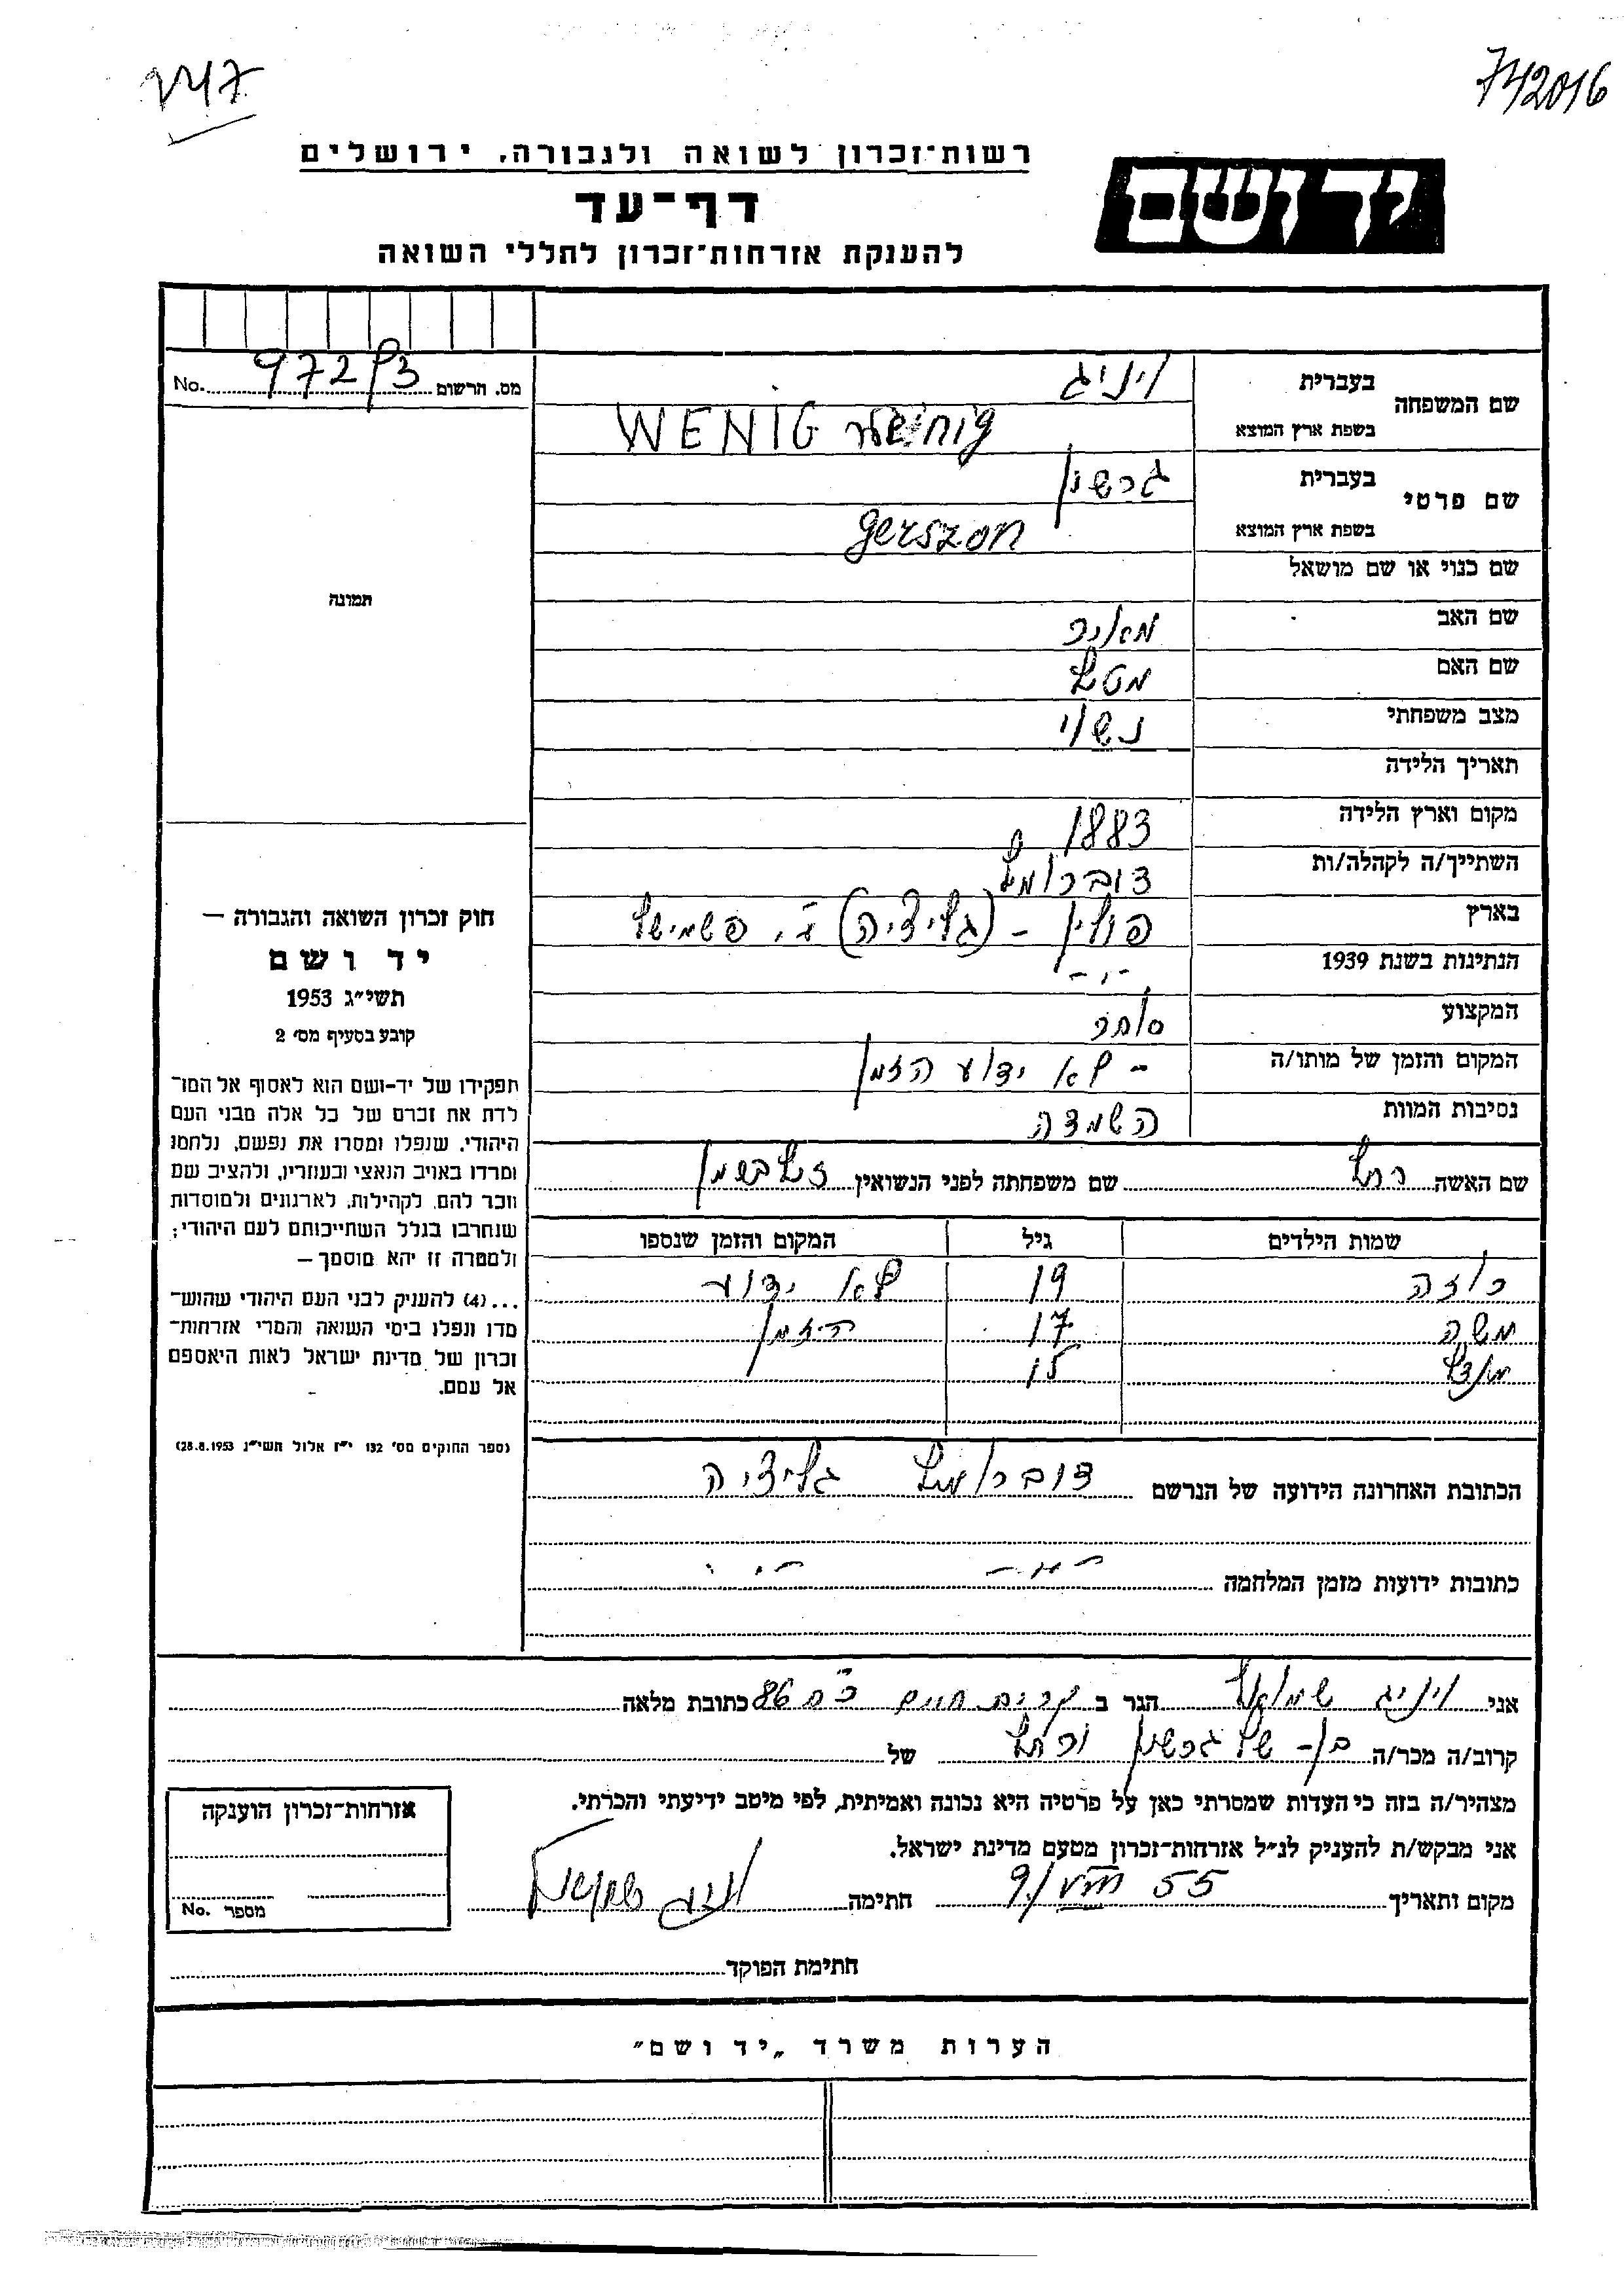 742016
רשות־זכרון לשואה ולגבורה, ירושלים
יד ושם
דף־עד
להענקת אזרחות־זכרון לחללי השואה
מס. הרשום No. 972/3
שם המשפחה
בעברית ויניג
בשפת ארץ המוצא WENIG
שם פרטי
בעברית גרשון
בשפת ארץ המוצא Gerszon
שם כנוי או שם מושאל
שם האב מאיר
שם האם מטל
מצב משפחתי נשוי
תאריך הלידה
מקום וארץ הלידה 1883
השתייך/ה לקהלה/ות דוברומיל
בארץ פולין - (גליציה) פשמישל
הנתינות בשנת 1939 -"-
המקצוע סוחר
המקום והזמן של מותו/ה - לא ידוע הזמן
נסיבות המוות השמדה
תמונה
חוק זכרון השואה והגבורה —
יד ושם
תשי"ג 1953
קובע בסעיף מס' 2
תפקידו של יד-ושם הוא לאסוף אל המו־
לדת את זכרם של כל אלה מבני העם
היהודי, שנפלו ומסרו את נפשם, נלחמו
ומרדו באויב הנאצי ובעוזריו, ולהציב שם
וזכר להם, לקהילות, לארגונים ולמוסדות
שנחרבו בגלל השתייכותם לעם היהודי;
ולמטרה זו יהא מוסמך —
...(4) להעניק לבני העם היהודי שהוש־
מדו ונפלו בימי השואה והמרי אזרחות־
זכרון של מדינת ישראל לאות היאספם
אל עמם.
(ספר החוקים מס' 132 י"ז אלול תשי"ג 28.8.1953)
שם האשה רחל שם משפחתה לפני הנשואין זילברמן
שמות הילדים גיל המקום והזמן שנספו
רוזה 19 לא ידוע
משה 17 הזמן
מנדל 15
הכתובת האחרונה הידועה של הנרשם דוברומיל גליציה
כתובות ידועות מזמן המלחמה -"- -"-
אני ויניג שמואל הגר ב קרית חיים 86 כתובת מלאה
קרוב/ה מכר/ה בן- של גרשון ורחל של
מצהיר/ה בזה כי העדות שמסרתי כאן על פרטיה היא נכונה ואמיתית, לפי מיטב ידיעתי והכרתי.
אני מבקש/ת להעניק לנ"ל אזרחות־זכרון מטעם מדינת ישראל.
מקום ותאריך 9/VIII 55 חתימה ויניג שמואל
חתימת הפוקד
אזרחות־זכרון הוענקה
מספר No.
הערות משרד „יד ושם"